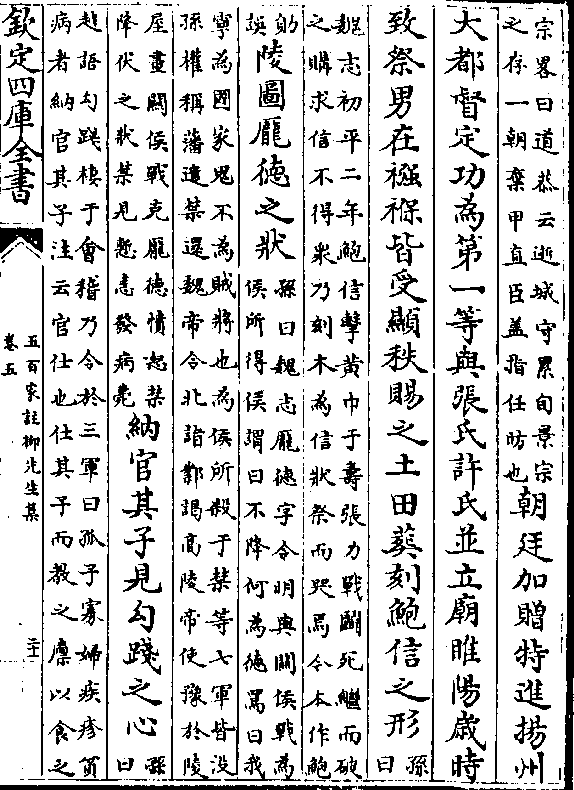 宗畧曰道恭云逝城守累旬景宗
之存一朝棄甲直臣盖指任昉也
朝廷加贈特進揚州
大都督定功為第一等與張氏許氏並立廟睢陽歳時
致祭男在襁褓皆受顯秩賜之土田葬刻鮑信之形
孫
曰
魏志初平二年鮑信擊黄巾于壽張力戰鬭死繼而破
之購求信不得衆乃刻木為信狀祭而哭焉今本作鮑
勛
誤
陵圖龎德之狀
孫曰魏志龎德字令明與關侯戰為
侯所得侯謂曰不降何為德罵曰我
寧為國家鬼不為賊將也為侯所殺于禁等七軍皆没
孫權稱藩遣禁還魏帝令北詣鄴謁高陵帝使豫於陵
屋畫關侯戰克龎德憤怒禁
降伏之狀禁見慙恚發病薨
納官其子見勾踐之心
孫
曰
越語勾踐棲于會稽乃令於三軍曰孤子寡婦疾疹貧
病者納官其子注云官仕也仕其子而教之廩以食之
欽定四庫全書
五百家註柳先生集
卷五
二十一